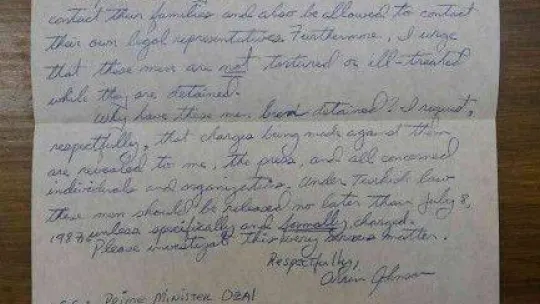 contact their families and also be allowed to contact
their own legal representatives. Furthermore, I urge
that these men are not tortured or ill-treated
while they are detained.
Why have these men been detained? I request,
respectfully, that charges being made against them
are revealed to me, the press, and all concerned
individuals and organizations. Under Turkish law
these men should be released no later than July 8,
1987, unless specifically and formally charged.
Please investigate this very serious matter.
Respectfully,
Johnson
cc: PRIME MINISTER OZAL